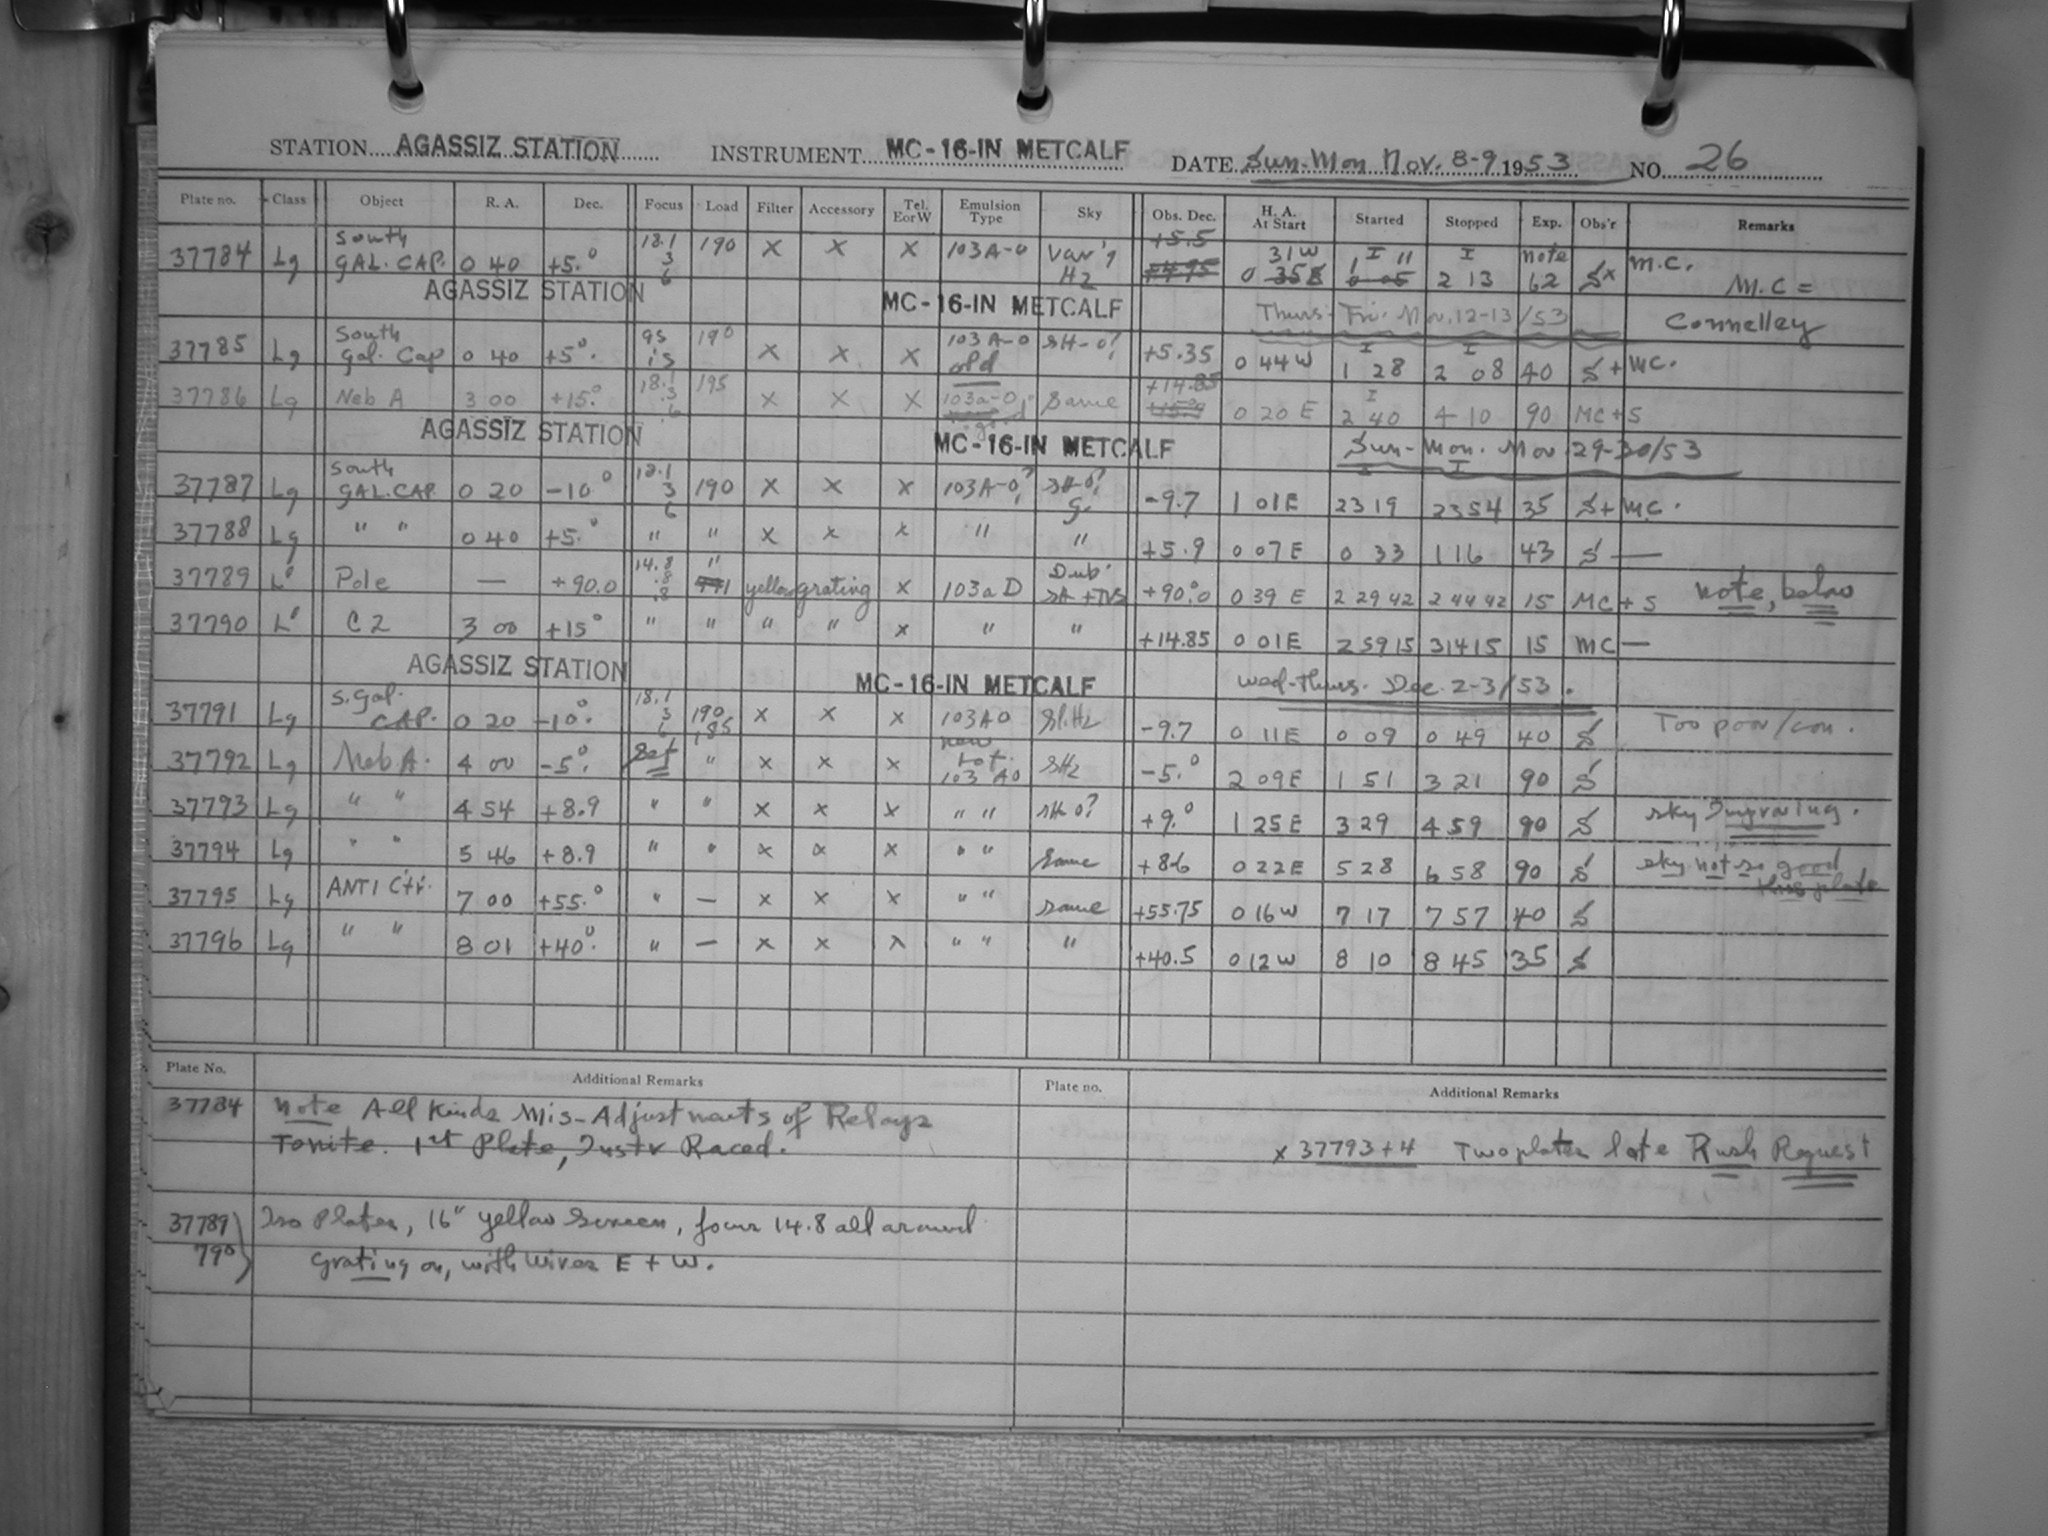 STATION AGASSIZ STATION INSTRUMENT MC-16-IN METCALF DATE Sun-Mon Nov. 8-9 1953 NO. 26
Plate no. Class Object R. A. Dec. Focus Load Filter Accessory Tel. EorW Emulsion Type Sky Obs. Dec. H. A. At Start Started Stopped Exp. Obs'r Remarks
37784 Lg South GAL. CAP. 0 40 +5.° 18.1 3 6 190 X X X 103A-0 Var'g Hz +5.5 0 31W 1 11 2 13 note 62 S x M.C. M.C = Connelley
AGASSIZ STATION MC-16-IN METCALF Thurs-Fri. Nov. 12-13/53
37785 Lg South Gal. Cap 0 40 +5°. 190 X X X 103A-0 old SH-0? +5.35 0 44W 1 28 2 08 40 S + MC.
37786 Lg Neb A 3 00 +15.° 18.1 .3 .6 195 X X X 103a-0 Same +14.85 0 20 E 2 40 4 10 90 MC+S
AGASSIZ STATION MC-16-IN METCALF Sun-Mon. Nov 29-30/53
37787 Lg South GAL.CAP 0 20 -10° 18.1 3 6 190 X X X 103A-0? SH-0? G. -9.7 1 01E 23 19 23 54 35 S + MC.
37788 Lg " " 0 40 +5.° " " X X X " " +5.9 0 07E 0 33 1 16 43 S —
37789 L' Pole — +90.0 14.8 .8 .8 " yellow grating X 103a D Dub' +90.°0 0 39 E 2 29 42 2 44 42 15 MC + S note, below
37790 L' C2 3 00 +15° " " " " X " " +14.85 0 01E 2 59 15 3 14 15 15 MC —
AGASSIZ STATION MC-16-IN METCALF Wed-Thurs. Dec. 2-3/53.
37791 Lg S. Gal. CAP. 0 20 -10°. 18.1 3 6 190 185 X X X 103A0 Sl.Hz -9.7 0 11E 0 09 0 49 40 S Too poor/con.
37792 Lg Neb A. 4 00 -5.° Set " X X X new Lot. 103 A0 SHz -5.° 2 09E 1 51 3 21 90 S
37793 Lg " " 4 54 +8.9 " " X X X " " SH 0? +9.° 1 25E 3 29 4 59 90 S sky Improving.
37794 Lg " " 5 46 +8.9 " " X X X " " Same +8.6 0 22E 5 28 6 58 90 S sky not so good this plate
37795 Lg ANTI Ctr. 7 00 +55.° " — X X X " " same +55.75 0 16W 7 17 7 57 40 S
37796 Lg " " 8 01 +40°. " — X X X " " " +40.5 0 12W 8 10 8 45 35 S
Plate No. Additional Remarks Plate no. Additional Remarks
37784 Note All Kinds Mis-Adjustments of Relays
Tonite. 1st Plate, Instr Raced.
x 37793+4 Two plates late Rush Request
37789 Iso Plates, 16" yellow Screen, focus 14.8 all around
790 Grating on, with wires E + W.